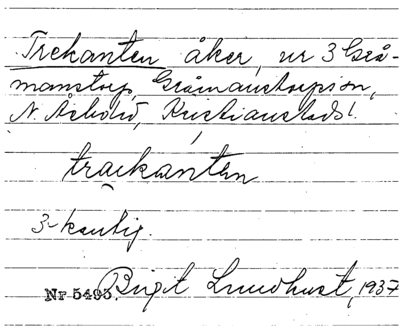 Trekanten åker, nr 3 Grå-
manstorp, Gråmanstorps sn,
N. Åsbo hd, Kristianstads l.
trækantən
3-kantig.
Nr 5495. Birgit Lundkvist, 1937